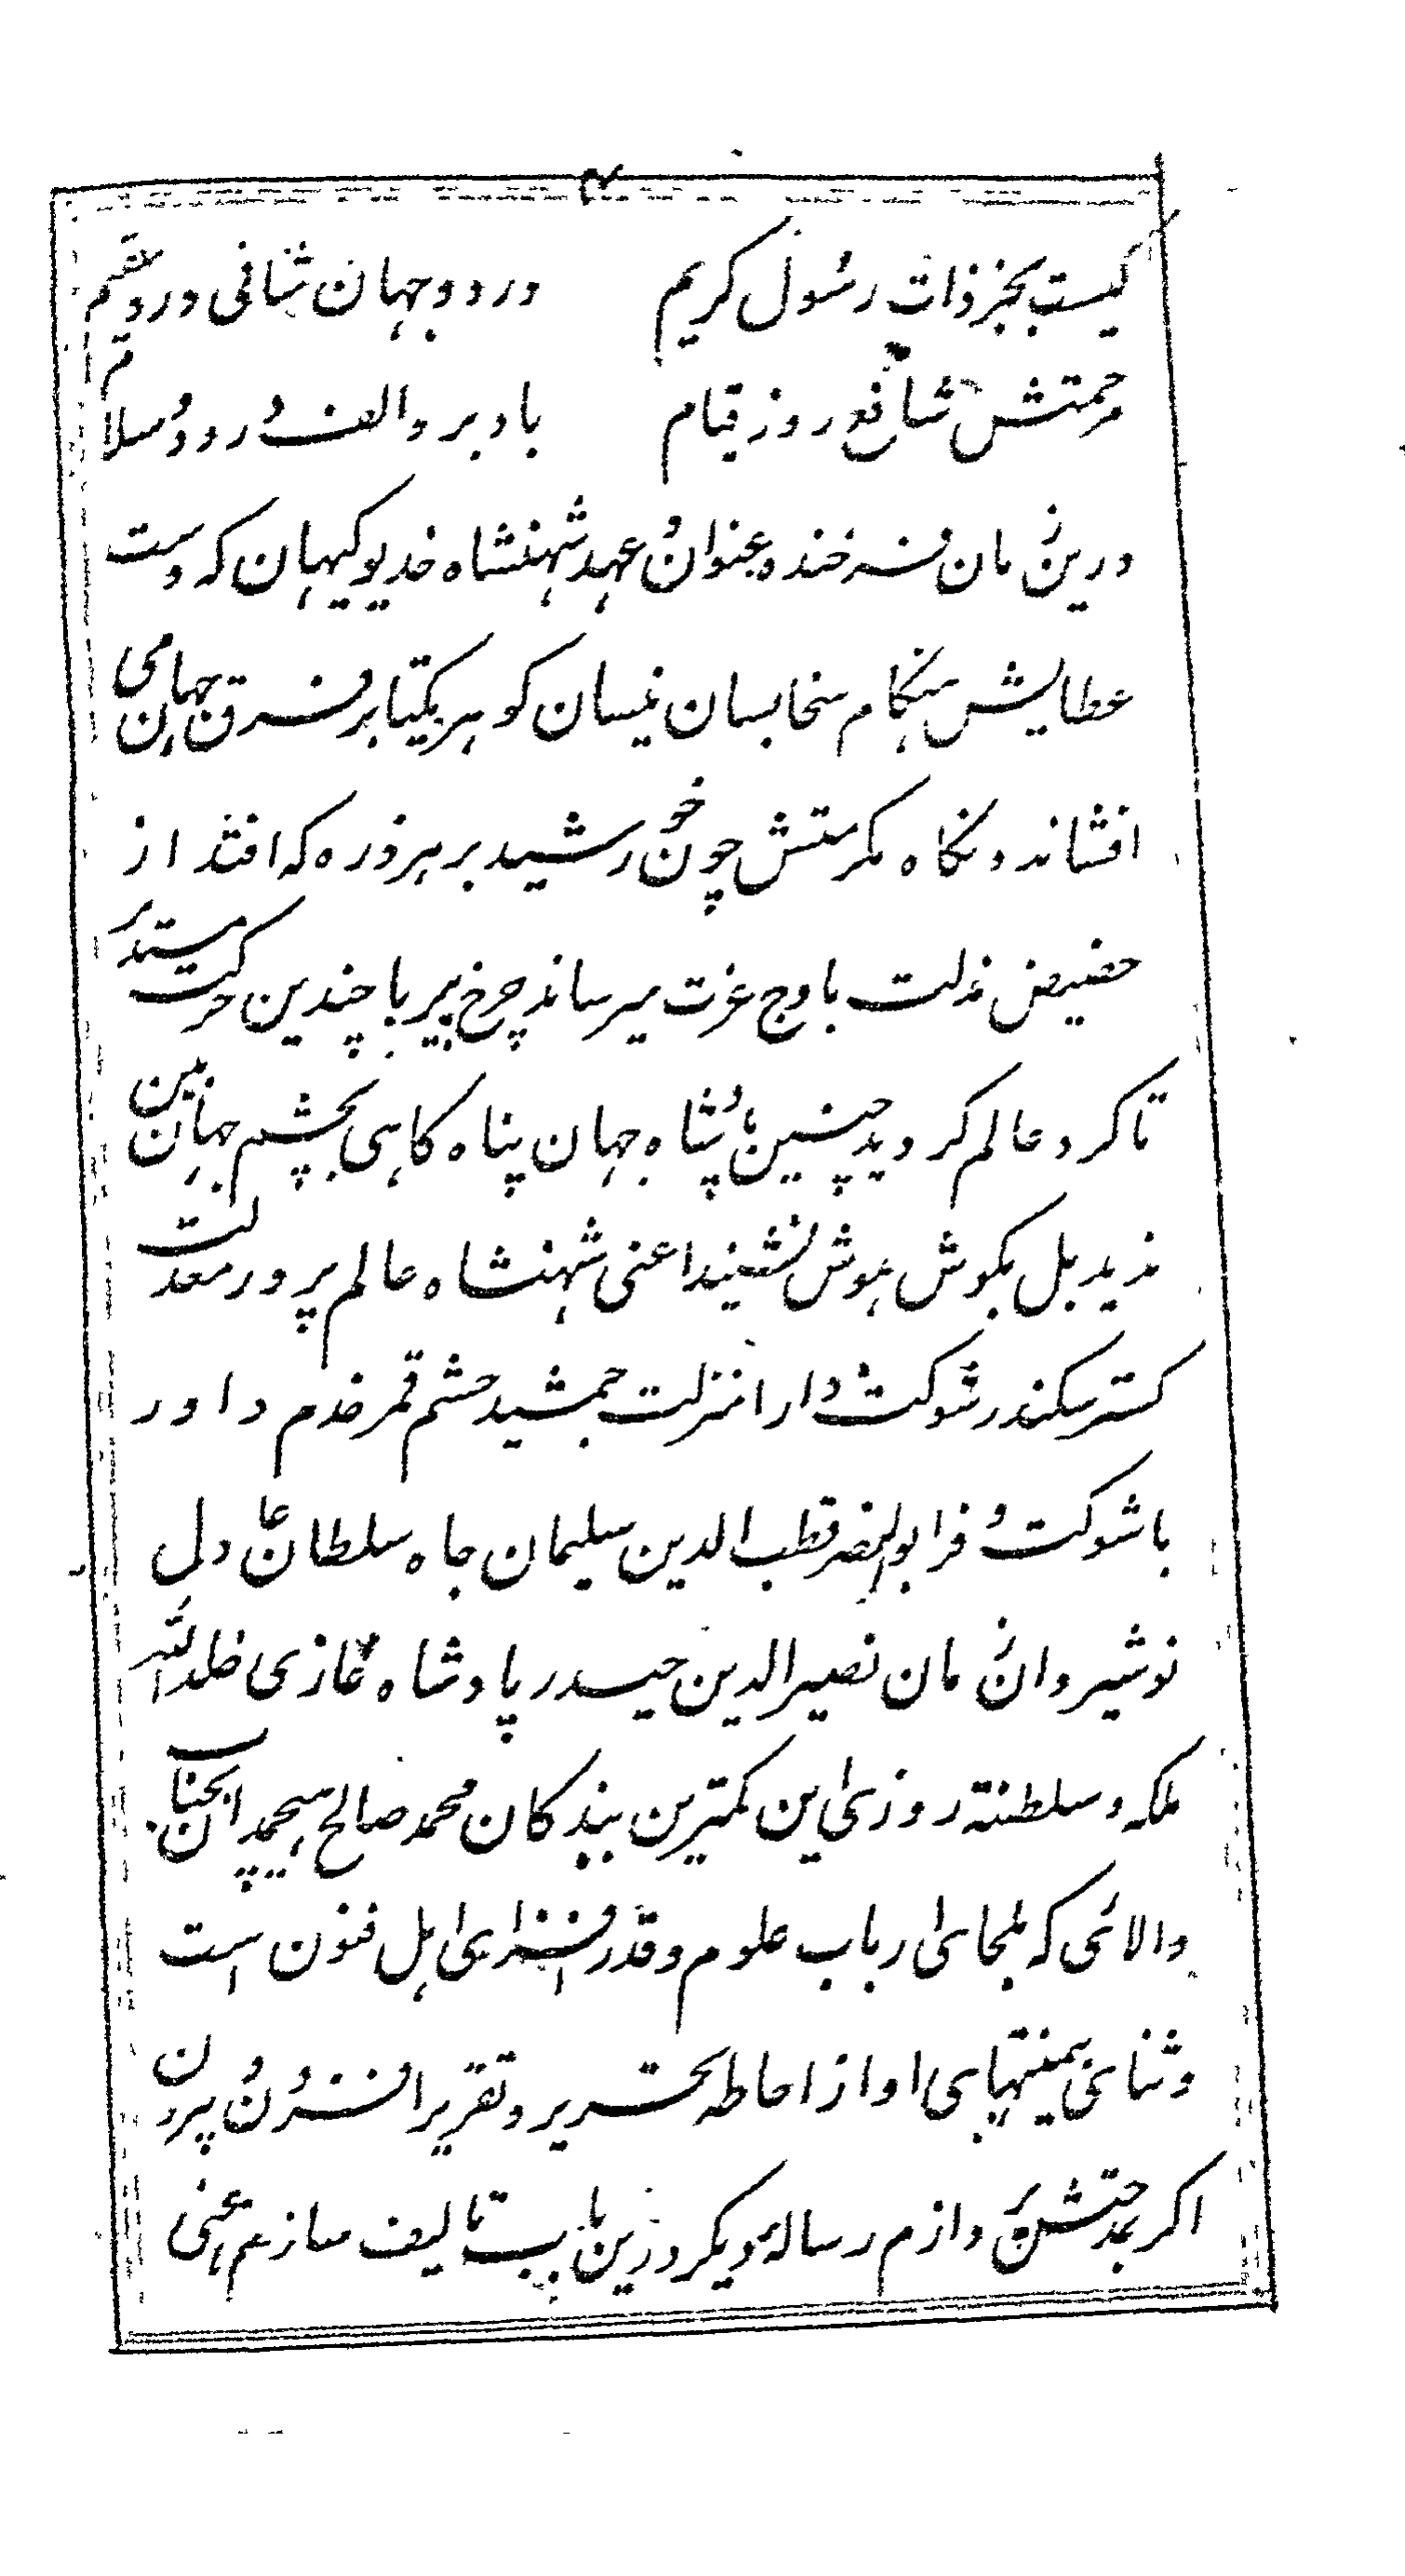 ۳
کیست بجز ذات رسول کریم در دو جهان شافی درد سقیم
مرحمتش شافع روز قیام باد برو الف درود و سلام
درین زمان فرخنده عنوان و عهد شهنشاه خدیو کیهان که دست
عطایش هنکام سخا بسان نیسان کوهر یکتا بر فرق جهانیان می
افشاند و نکاه مکرمتش چون خورشید بر هر ذره که افتد از
حضیض مذلت باوج عزت میرساند چرخ پیر با چندین حرکت مستدیر
تا کرد عالم کردید چنین پادشاه جهان پناه کاهی بچشم جهان بین
ندید بل بکوش هوش نشنید اعنی شهنشاه عالم پرور معدلت
کستر سکندر شوکت و دارا منزلت جمشید حشم قمر خدم داور
با شوکت و فر ابوالنصر قطب الدین سلیمان جاه سلطان عادل
نوشیروان زمان نصیر الدین حیدر پادشاه غازی خلد الله
ملکه و سلطنته روزی این کمترین بندکان محمد صالح هیچمدان بجناب
والائی که ملجای ارباب علوم و قدر افزای اهل فنون است
و ثنای بیمنتهای او از احاطه تحریر و تقریر افزون و بیرون
اکر بمدحتش پردازم رساله دیکر درین باب تالیف سازم اعنی